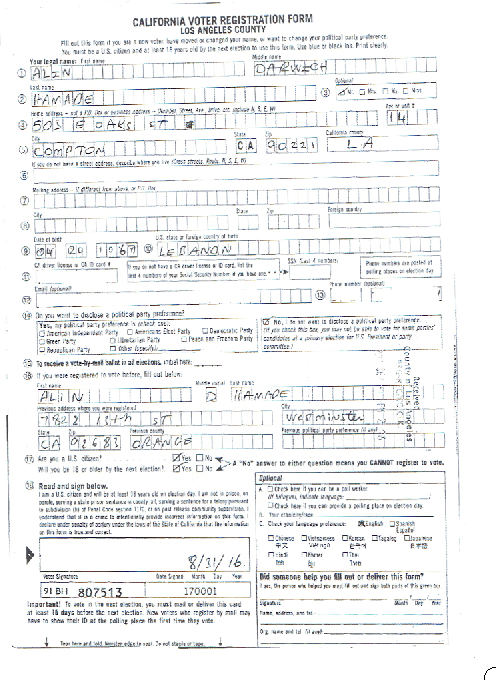 CALIFORNIA VOTER REGISTRATION FORM
LOS ANGELES COUNTY
Fill out this form if you are a new voter, have moved or changed your name, or want to change your political party preference.
You must be a U.S. citizen and at least 18 years old by the next election to use this form. Use blue or black ink. Print clearly.
Your legal name: First name Middle name
1 ALIN DARWICH
Last name Optional
2 HAMADE 3 Mr. Mrs. Ms. Miss
Home address Apt or unit #
4 503 E OAKS ST 14
City State Zip California county
5 COMPTON CA 90221 LA
If you do not have a street address, describe where you live (Cross streets, Route, N, S, E, W)
6
Mailing address - if different from above, or P.O. Box
7
City State Zip Foreign country
8
Date of birth U.S. state or foreign country of birth
9 04 20 1967 10 LEBANON
CA driver license or CA ID card # If you do not have a CA driver license or ID card, list the last 4 numbers of your Social Security Number, if you have one. SSN (Last 4 numbers) Phone numbers are posted at polling places on election day
11
Email (optional) Phone number (optional)
12 13
14 Do you want to disclose a political party preference?
Yes, my political party preference is (check one):
American Independent Party Americans Elect Party Democratic Party
Green Party Libertarian Party Peace and Freedom Party
Republican Party Other (specify)
No, I do not want to disclose a political party preference.
(If you check this box, you may not be able to vote for some parties' candidates at a primary election for U.S. President or party committee.)
15 To receive a vote-by-mail ballot in all elections, initial here:
16 If you were registered to vote before, fill out below:
First name Middle initial Last name
ALIN D HAMADE
Previous address where you were registered City
7822 13th ST Westminster
State Zip Previous county Previous political party preference (if any)
CA 92683 ORANGE
Received
Los Angeles
17 Are you a U.S. citizen? Yes No
Will you be 18 or older by the next election? Yes No
A "No" answer to either question means you CANNOT register to vote.
18 Read and sign below.
I am a U.S. citizen and will be at least 18 years old on election day. I am not in prison, on
8/31/16
Voter Signature Date Signed Month Day Year
91 BH 807513 170001
Important! To vote in the next election, you must mail or deliver this card
at least 15 days before the next election. New voters who register by mail may
have to show their ID at the polling place the first time they vote.
Optional
A. Check here if you can be a poll worker.
If bilingual, indicate language:
Check here if you can provide a polling place on election day.
B. Your ethnicity/race
C. Check your language preference: English Spanish
Español
Chinese Vietnamese Korean Tagalog Japanese
中文 Việt ngữ 한국어 日本語
Hindi Khmer Thai
Did someone help you fill out or deliver this form?
If yes, the person who helped you must fill out and sign both parts of this green box
Signature Month Day Year
Name, address, and tel
Org. name and tel (if any)
Tear here and fold. Moisten edge to seal. Do not staple or tape.